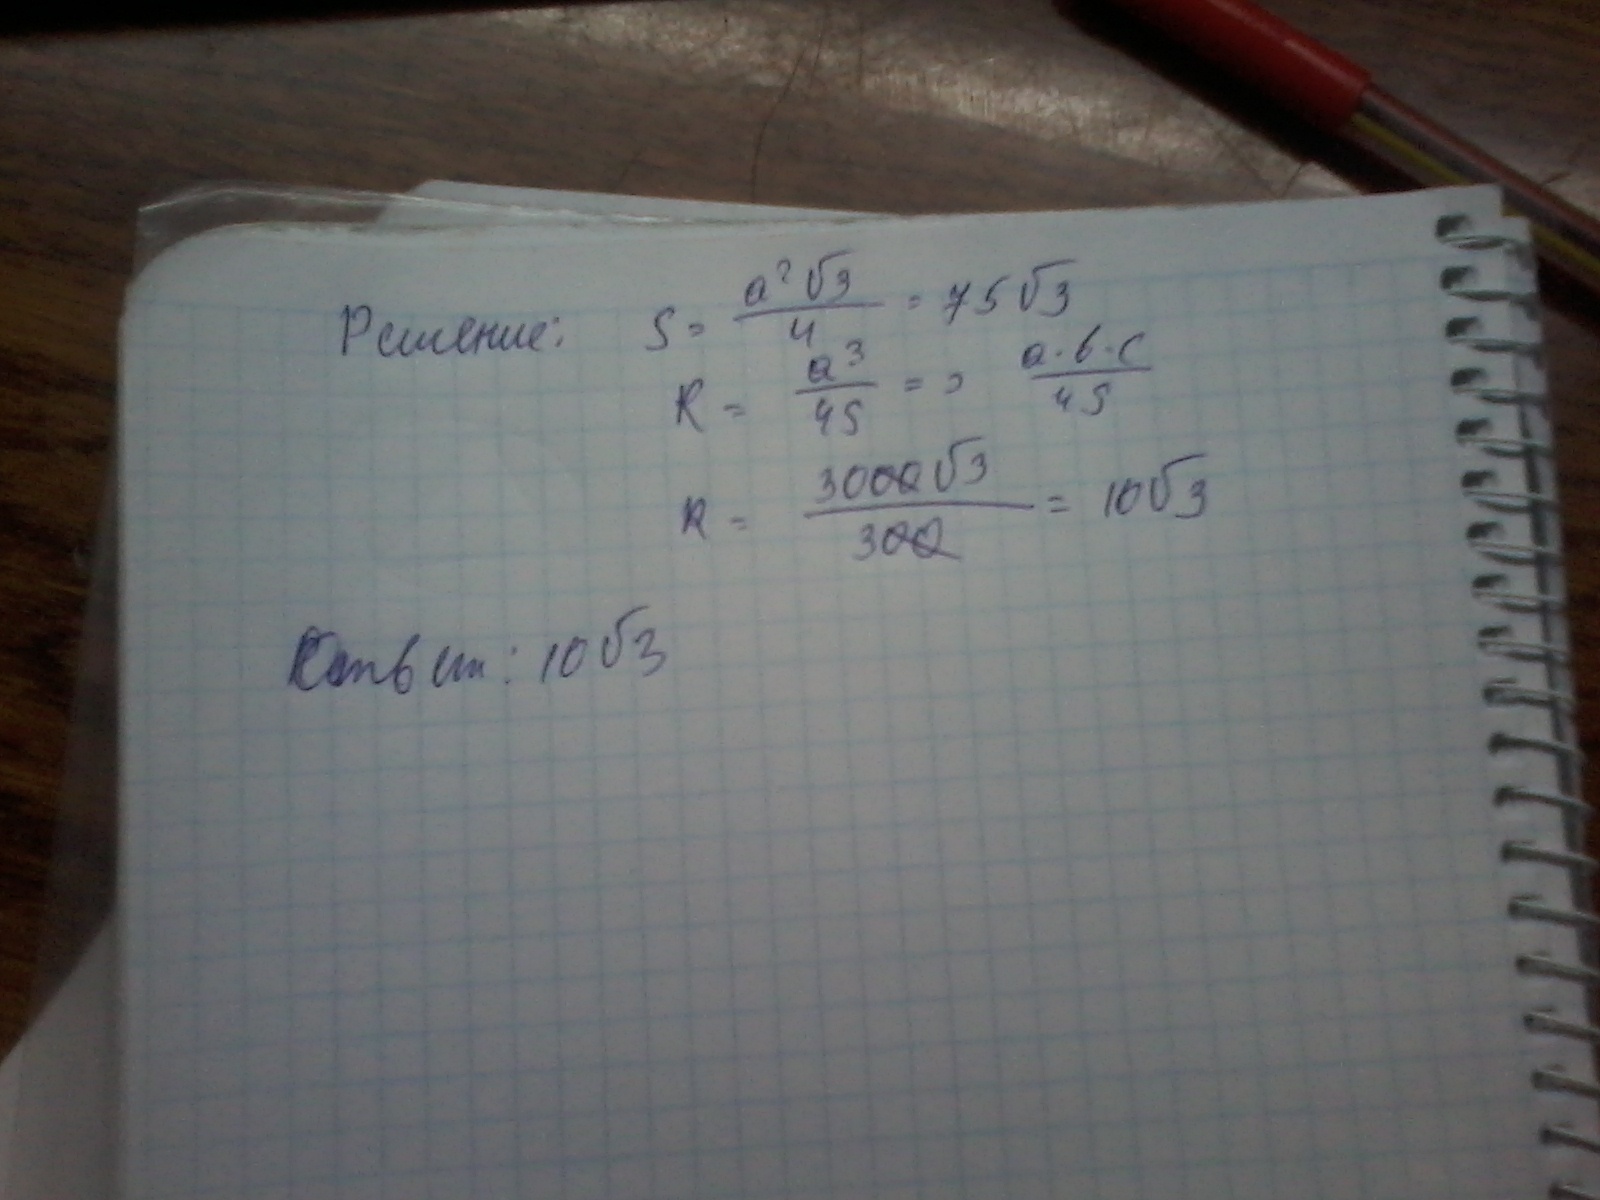 Решение: S = a²√3/4 = 75√3
R = a³/4S = > a·b·c/4S
R = 3000√3/300 = 10√3
Ответ: 10√3